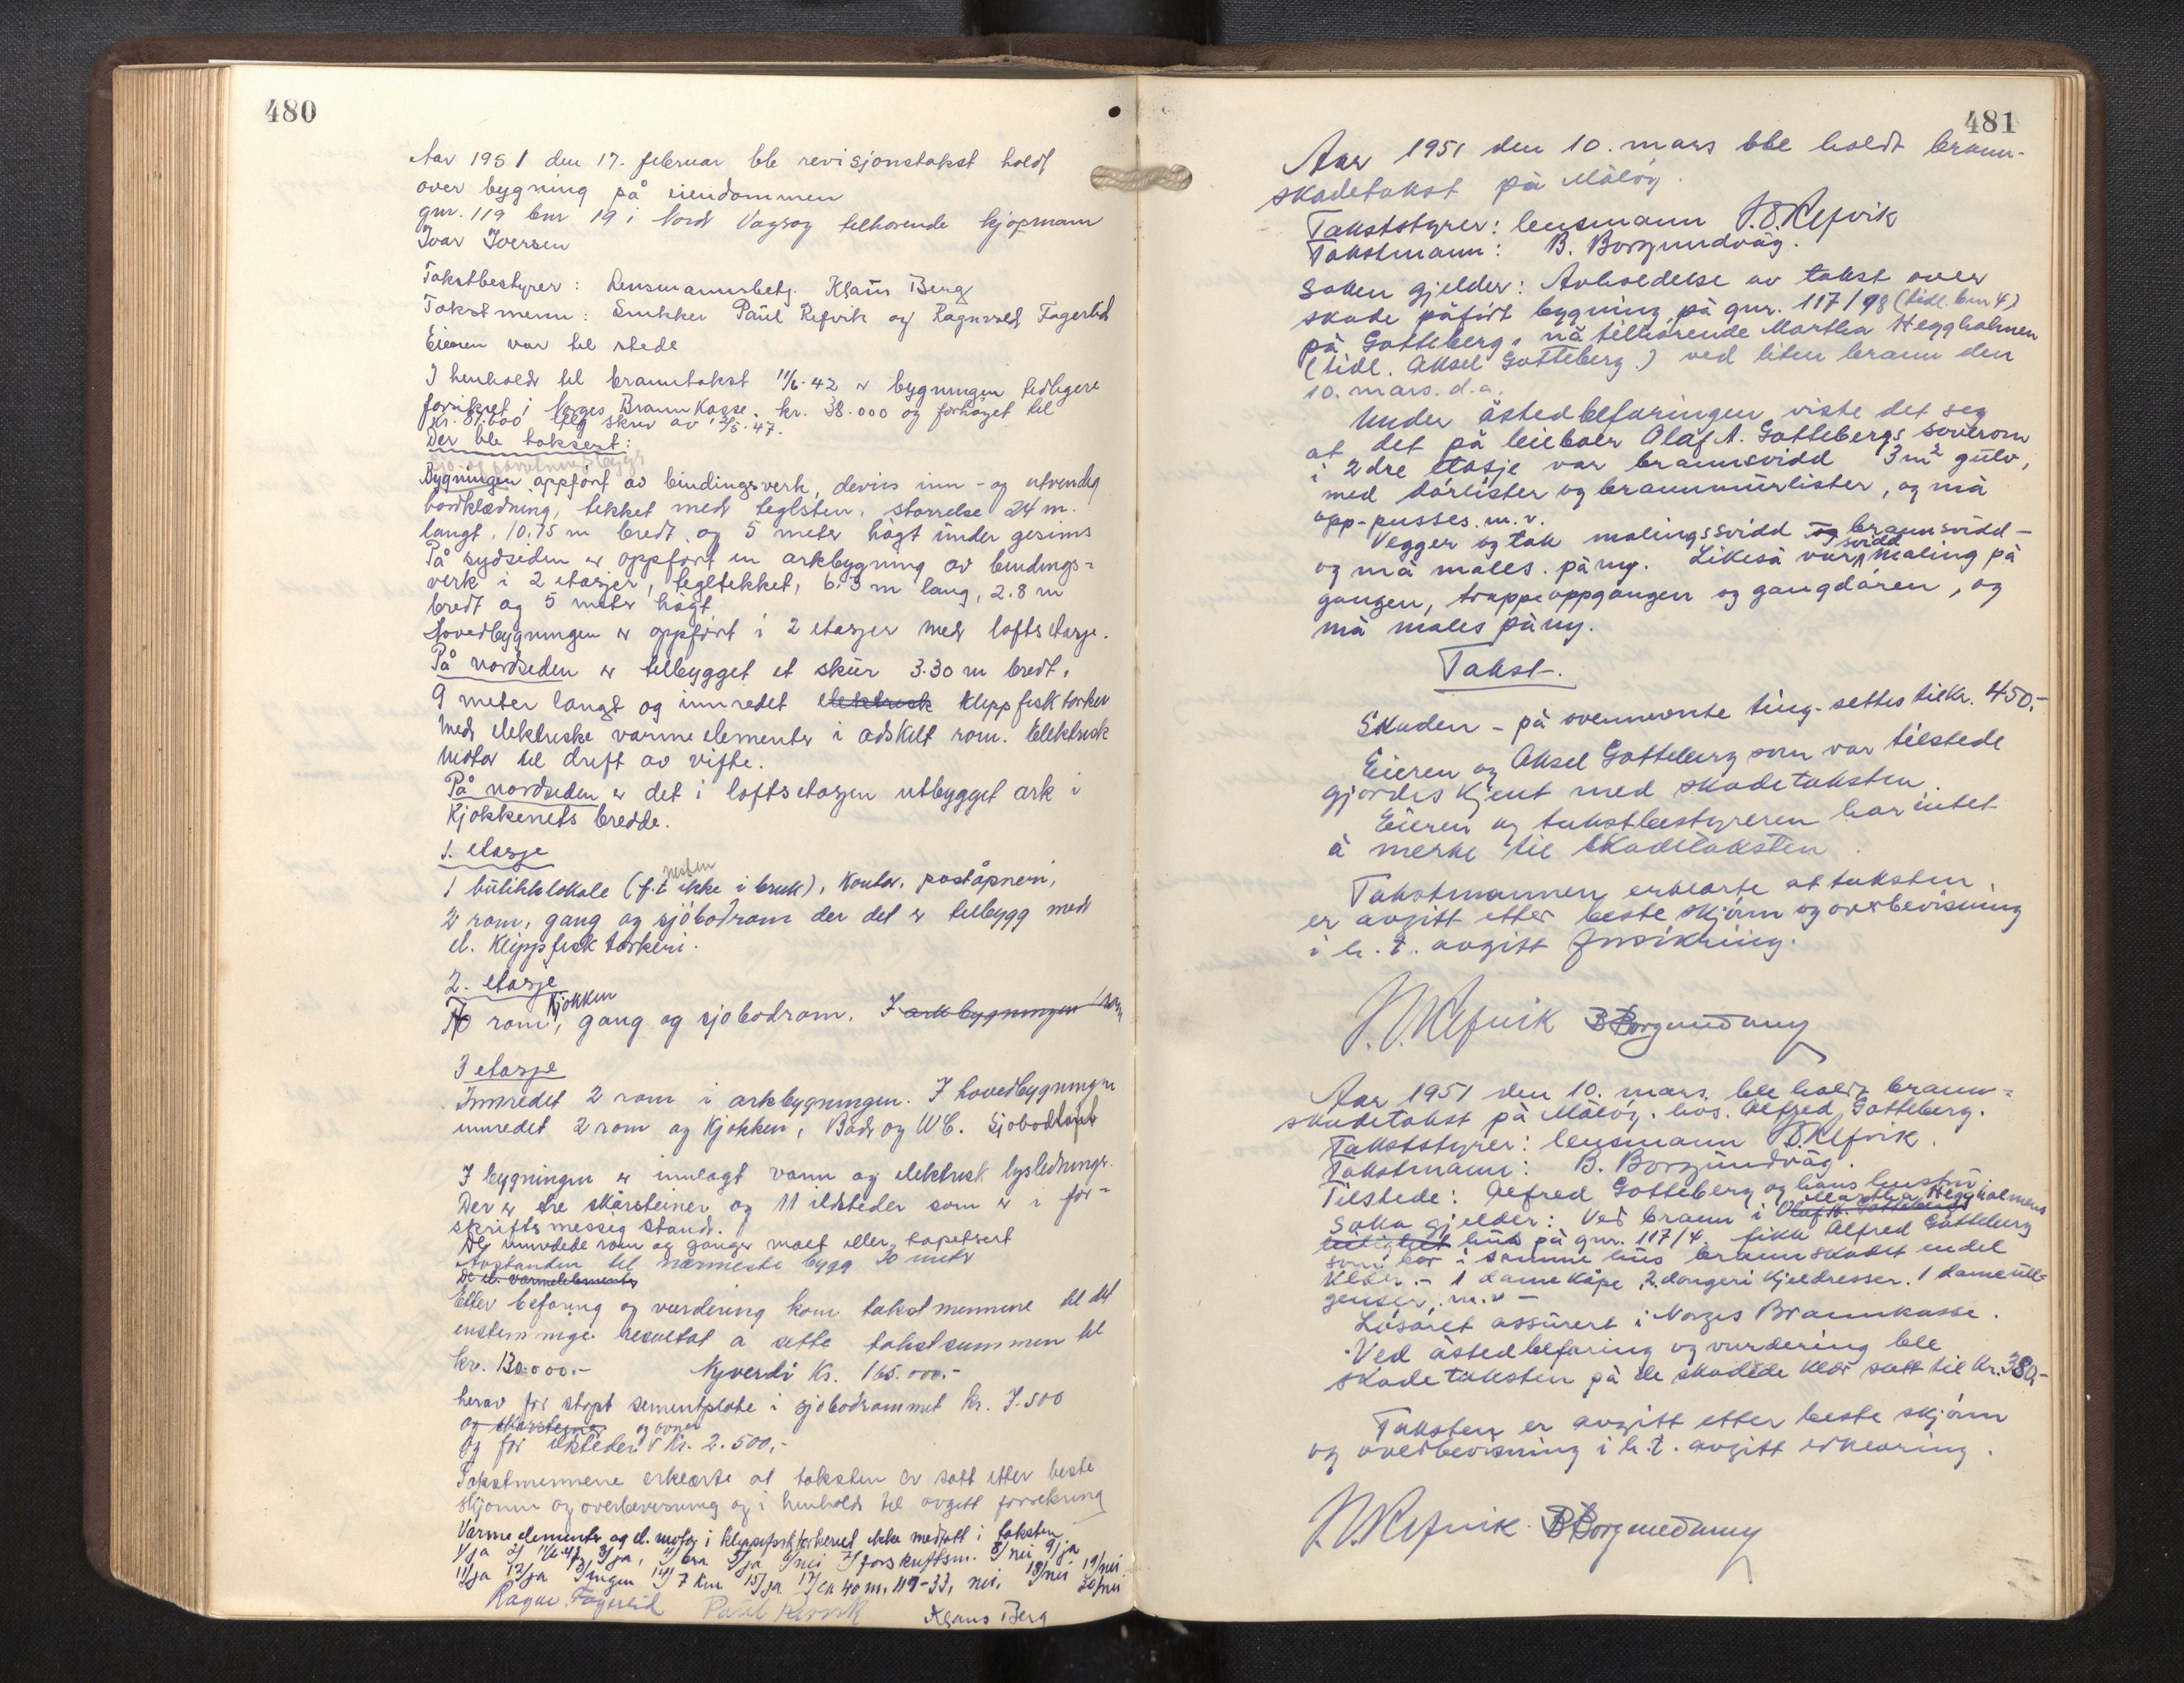 480
Aar 1951 den 17. februar ble revisjonstakst holdt
over bygning på eiendommen
gnr. 119 bnr 19 i Nord Vagsoy tilhorende kjopmann
Ivar Iversen
Takstbestyrer: Lensmannsbetj. Klaus Berg
Takstmenn: Snekker Paul Refvik og Ragnvald Fagerlid
Eieren var til stede
I henhold til branntakst 11/6-42 er bygningen tidligere
forsikret i Norges Brannkasse. kr. 38.000 og forhøyet til
kr. 81.600 iflg skriv av 12/5-47.
Der ble taksert:
Bygningen oppfört av bindingsverk, delvis inn- og utvendig
bordklædning, tekket med teglsten, storrelse 24 m.
langt, 10.75 m bredt og 5 meter högt under gesims
På sydsiden er oppfört en arkbygning av bindings-
verk i 2 etasjer, tegltekket, 6.3 m lang, 2.8 m
bredt og 5 meter högt
Hovedbygningen er oppfört i 2 etasjer med loftsetasje.
På nordsiden er tilbygget et skur 3.30 m bredt,
9 meter langt og innredet elektrisk klippfisktorker
med elektriske varmeelementer i adskilt rom. Elektrisk
motor til drift av vifte.
På nordsiden er det i loftsetasjen utbygget ark i
Kjokkenets bredde.
1. etasje
1 butikklokale (f.t. nesten ikke i bruk), Kontor, poståpneri,
2 rom, gang og sjöbodrom der det er tilbygg med
el. Klippfisk torkeri.
2. etasje
rom, Kjokken gang og sjobodrom. I arkbygningen 1 rom
3 etasje
Innredet 2 rom i arkbygningen. I hovedbygningen
innredet 2 rom og Kjokken, Bad og WC. Sjobodloft
I bygningen er innlagt vann og elektrisk lysledninger.
Der er tre skårsteiner og 11 ildsteder som er i for-
skriftsmessig stand.
De innredede rom og ganger malt eller tapetsert
Avstanden til nærmeste bygg 30 meter
De el. varmeelementer
Etter befaring og vurdering kom takstmennene til det
enstemmige resultat a sette takstsummen til
kr. 130.000.- Nyverdi Kr. 165.000.-
herav for stöpt sementplate i sjobodrommet kr. 7.500
og skorsteiner og ovner
og for ildsteder Kr. 2.500,-
Takstmennene erklærte at taksten er satt etter beste
skjonn og overbevisning og i henhold til avgitt forsikring
Varmeelementer og el. motor i klippfisktorkeriet ikke medtatt i taksten
1/ja 2/ 11/6-42, 3/ja, 4/bra 5/ja 6/nei 7/forskriftsm. 8/nei 9/ja
11/ja 12/ja 13/ingen 14/ 7 km 15/ja 17/ca 40 m. 119-33, nei, 18/nei 19/nei 20/nei
Ragnv. Fagerlid Paul Refvik Klaus Berg
481
Aar 1951 den 10. mars ble holdt brann-
skadetakst på Målöy.
Takststyrer: lensmann J.O. Refvik
Takstmann: B. Borgundvåg.
Saken gjelder: Avholdelse av takst over
skade påfört bygning, på gnr. 117/98 (tidl. bnr 4)
på Gotteberg, nå tilhorende Martha Heggholmen
(tidl. Aksel Gotteberg) ved liten brann den
10. mars. d.a.
Under åstedbefaringen viste det seg
at det på leieboer Olaf A. Gottebergs soverom
i 2dre etasje var brannsvidd 3 m² gulv,
med dörlister og brannmurlister, og må
opp-pusses. m.v.
Vegger og tak malingssvidd og brannsvidd -
og må males påny. Likeså var svidd maling på
gangen, trappeoppgangen og gangdören, og
må males påny.
Takst.
Skaden - på ovennevnte ting - settes til kr. 450.-
Eieren og Aksel Gotteberg som var tilstede
gjordes kjent med skadetaksten.
Eieren og takstbestyreren har intet
å merke til skadetaksten.
Takstmannen erklærte at taksten
er avgitt etter beste skjönn og overbevisning
i h.t. avgitt forsikring.
J.O. Refvik B Borgundvåg
Aar 1951 den 10. mars. ble holdt brann-
skadetakst på Målöy. hos. Alfred Gotteberg.
Takststyrer: lensmann J.O. Refvik.
Takstmann: B. Borgundvåg.
Tilstede: Alfred Gotteberg og hans hustru.
Saka gjelder: Ved brann i Olaf A. Gottebergs Martha Heggholmens
leilighet hus på gnr. 117/4. fikk Alfred Gotteberg
som bor i samme hus brannskadet endel
klær. - 1 dame kåpe, 2 dongeri kjeldresser. 1 dame ull-
genser, m.v -
Lösöret assurert i Norges Brannkasse.
Ved åstedbefaring og vurdering ble
skadetaksten på de skadede klær satt til kr. 380,-
Taksten er avgitt etter beste skjönn
og overbevisning i h.t. avgitt erklæring.
J.O. Refvik. B Borgundvåg